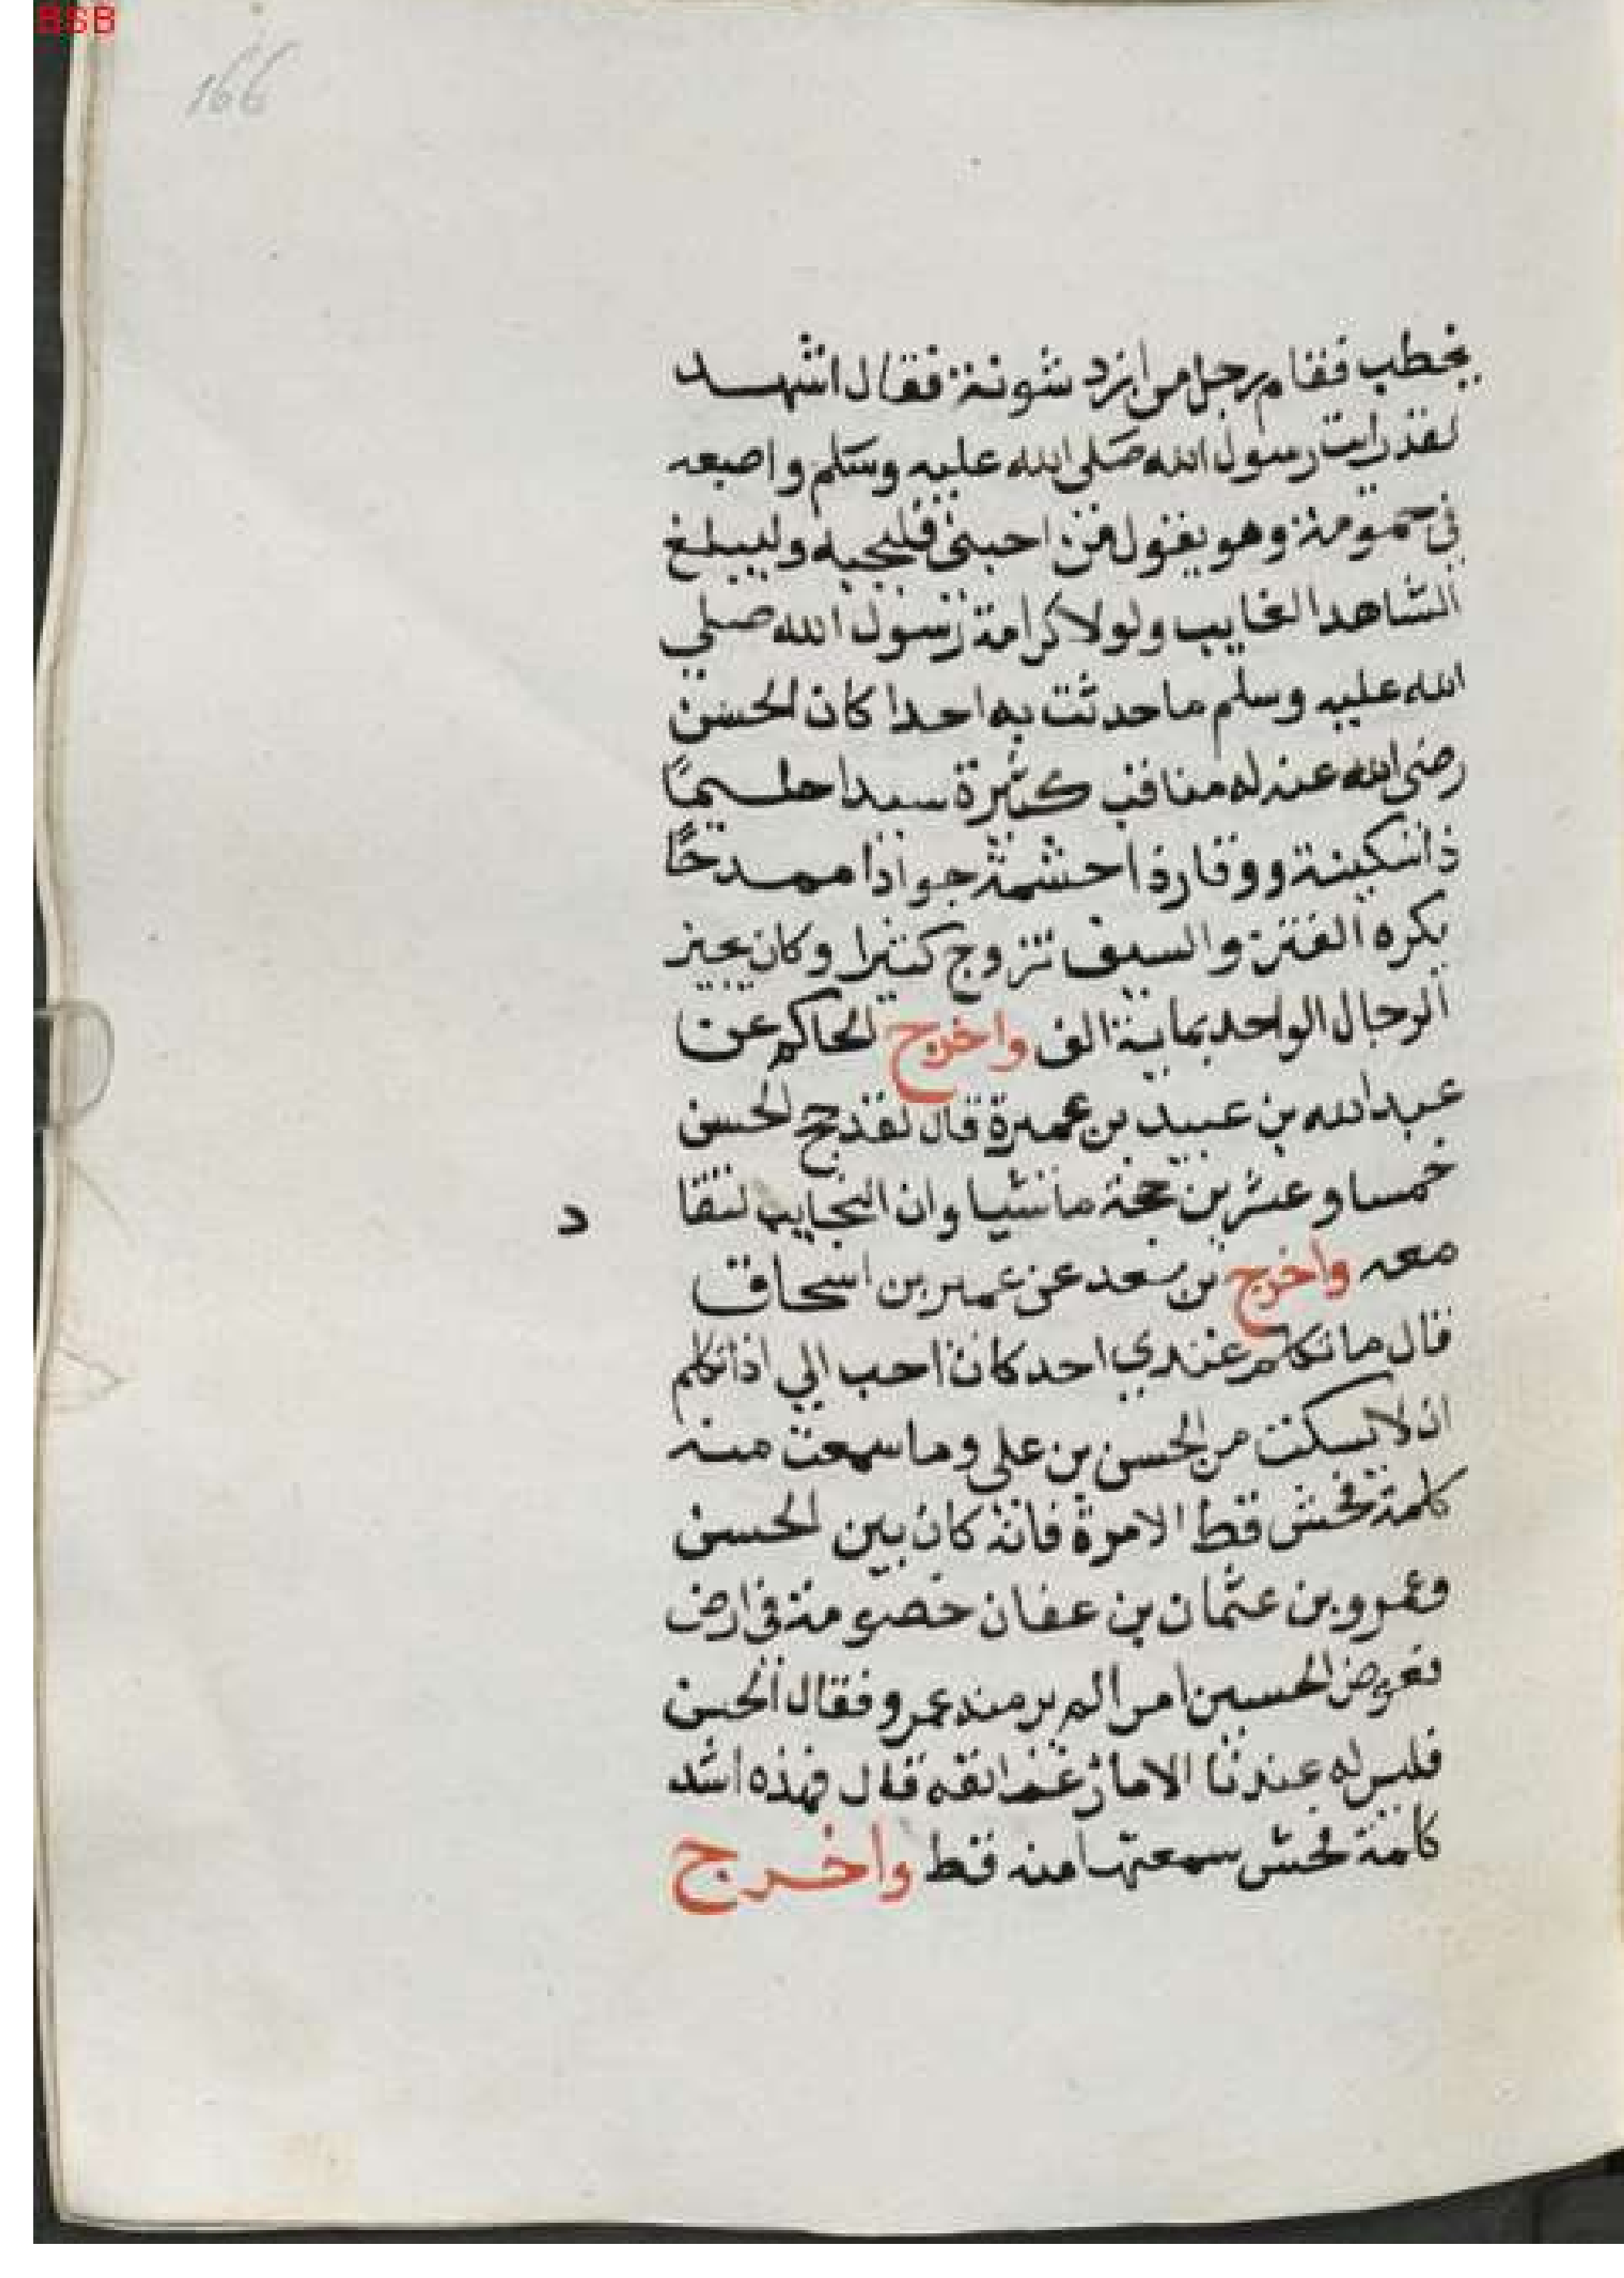 BSB
166
يخطب فقام رجل من ازد شونة فقال اشهد
لقد رايت رسول الله صلى الله عليه وسلم واصبعه
في حموته وهو يقول من احبني فليحبه وليبلغ
الشاهد الغايب ولولا كرامة رسول الله صلي
الله عليه وسلم ما حدثت به احدا كان الحسن
رضى الله عنه له مناقب كثيرة سيدا حليمًا
ذا سكينة ووقار ذا حشمة جوادا ممدحًا
يكره الفتن والسيف تزوج كثيرا وكان يجيز
الرجال الواحد بماية الف واخرج الحاكم عن
عبد الله بن عبيد بن عميرة قال لقد حج الحسن
خمسا وعشرين حجة ماشيا وان النجايب لتقا
د
معه واخرج بن سعد عن عمير بن اسحاق
قال ما تكلم عندي احد كان احب الي اذا تكلم
ان لا يسكت من الحسن بن على وما سمعت منه
كلمة فحش قط الا مرة فانه كان بين الحسن
وعمرو بن عثمان بن عفان خصومة في ارض
فعرض الحسين امرا لم يرضه عمرو فقال الحسن
فليس له عندنا الا ما رغم انفه قال فهذه اشد
كلمة فحش سمعتها منه قط واخرج